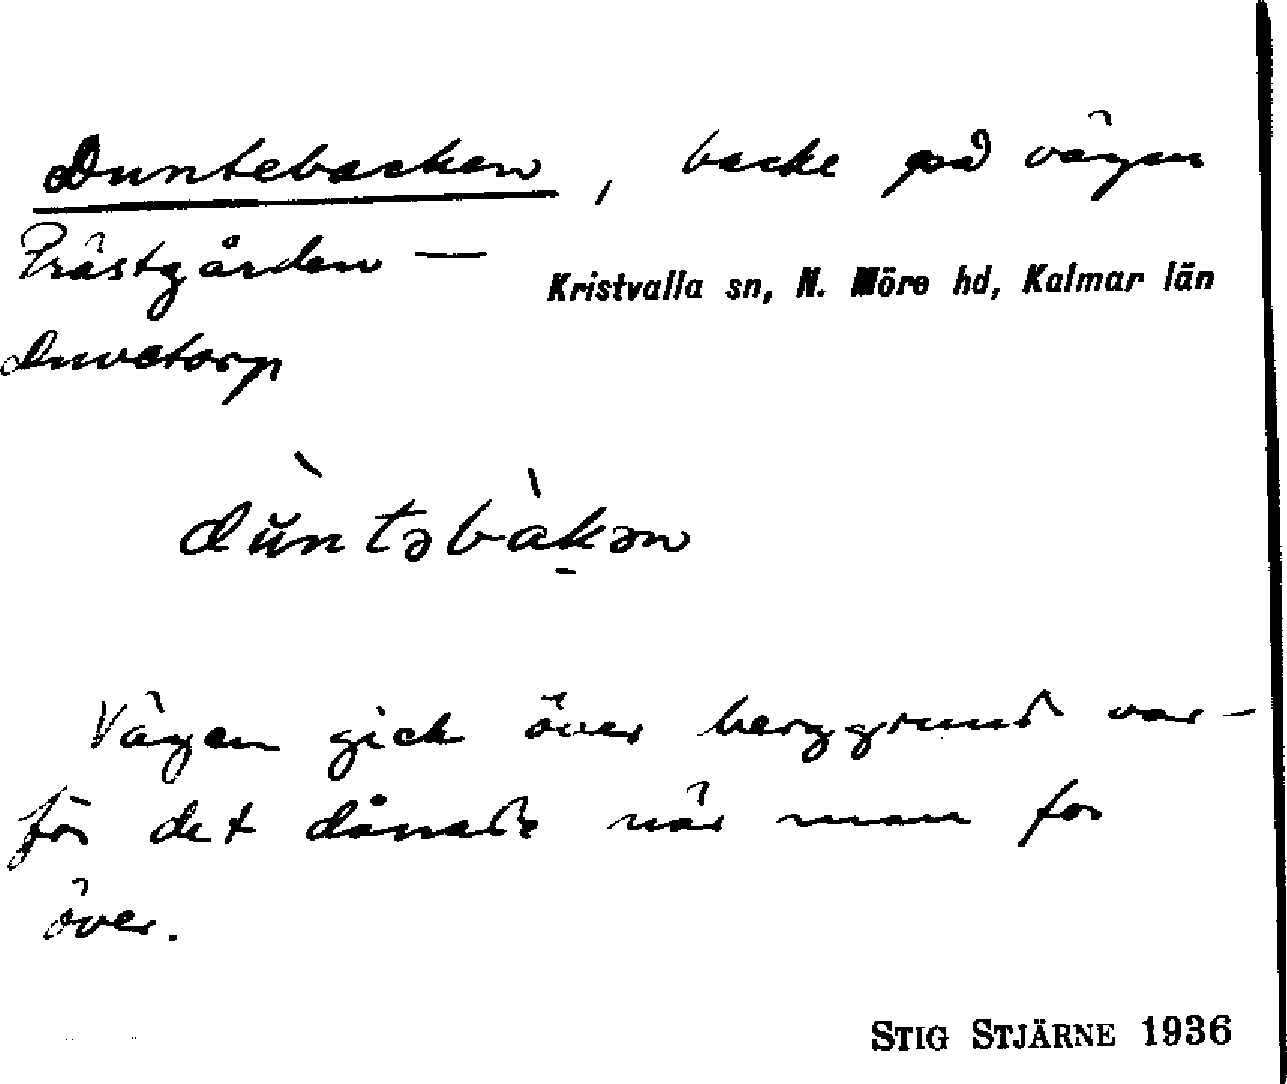 Duntebacken, backe på vägen
Prästgården —
Kristvalla sn, N. Möre hd, Kalmar län
Duvetorp
dŭ̀ntəbàkən
Vägen gick över berggrund var-
för det dånade när man for
över.
STIG STJÄRNE 1936